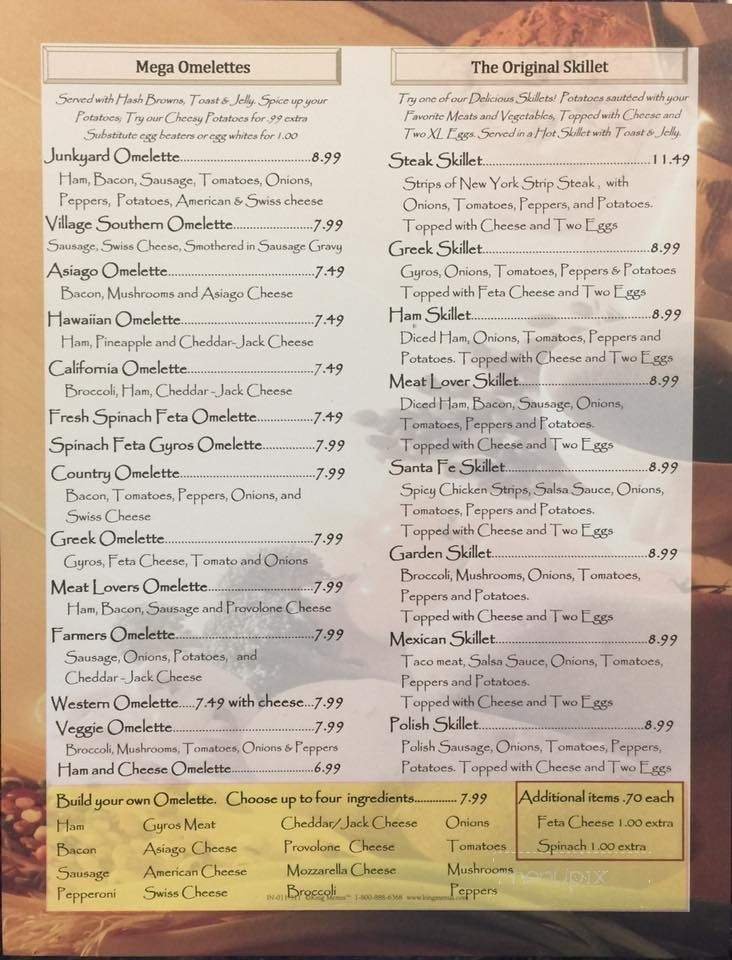 Mega Omelettes
Served with Hash Browns, Toast & Jelly. Spice up your
Potatoes; Try our Cheesy Potatoes for .99 extra
Substitute egg beaters or egg whites for 1.00
Junkyard Omelette..............................8.99
Ham, Bacon, Sausage, Tomatoes, Onions,
Peppers, Potatoes, American & Swiss cheese
Village Southern Omelette..................7.99
Sausage, Swiss Cheese, Smothered in Sausage Gravy
Asiago Omelette.................................7.49
Bacon, Mushrooms and Asiago Cheese
Hawaiian Omelette..............................7.49
Ham, Pineapple and Cheddar-Jack Cheese
California Omelette.............................7.49
Broccoli, Ham, Cheddar-Jack Cheese
Fresh Spinach Feta Omelette.............7.49
Spinach Feta Gyros Omelette............7.99
Country Omelette...............................7.99
Bacon, Tomatoes, Peppers, Onions, and
Swiss Cheese
Greek Omelette..................................7.99
Gyros, Feta Cheese, Tomato and Onions
Meat Lovers Omelette........................7.99
Ham, Bacon, Sausage and Provolone Cheese
Farmers Omelette................................7.99
Sausage, Onions, Potatoes, and
Cheddar-Jack Cheese
Western Omelette.....7.49 with cheese...7.99
Veggie Omelette.................................7.99
Broccoli, Mushrooms, Tomatoes, Onions & Peppers
Ham and Cheese Omelette...................6.99
The Original Skillet
Try one of our Delicious Skillets! Potatoes sautéed with your
Favorite Meats and Vegetables, Topped with Cheese and
Two XL Eggs. Served in a Hot Skillet with Toast & Jelly.
Steak Skillet.......................................11.49
Strips of New York Strip Steak, with
Onions, Tomatoes, Peppers, and Potatoes.
Topped with Cheese and Two Eggs
Greek Skillet.......................................8.99
Gyros, Onions, Tomatoes, Peppers & Potatoes
Topped with Feta Cheese and Two Eggs
Ham Skillet..........................................8.99
Diced Ham, Onions, Tomatoes, Peppers and
Potatoes. Topped with Cheese and Two Eggs
Meat Lover Skillet...............................8.99
Diced Ham, Bacon, Sausage, Onions,
Tomatoes, Peppers and Potatoes.
Topped with Cheese and Two Eggs
Santa Fe Skillet..................................8.99
Spicy Chicken Strips, Salsa Sauce, Onions,
Tomatoes, Peppers and Potatoes.
Topped with Cheese and Two Eggs
Garden Skillet.....................................8.99
Broccoli, Mushrooms, Onions, Tomatoes,
Peppers and Potatoes.
Topped with Cheese and Two Eggs
Mexican Skillet....................................8.99
Taco meat, Salsa Sauce, Onions, Tomatoes,
Peppers and Potatoes.
Topped with Cheese and Two Eggs
Polish Skillet.......................................8.99
Polish Sausage, Onions, Tomatoes, Peppers,
Potatoes. Topped with Cheese and Two Eggs
Build your own Omelette. Choose up to four ingredients............. 7.99
Ham Gyros Meat Cheddar/Jack Cheese Onions
Bacon Asiago Cheese Provolone Cheese Tomatoes
Sausage American Cheese Mozzarella Cheese Mushrooms
Pepperoni Swiss Cheese Broccoli Peppers
Additional items .70 each
Feta Cheese 1.00 extra
Spinach 1.00 extra
menupix
King Menus™ 1-800-888-6368 www.kingmenus.com